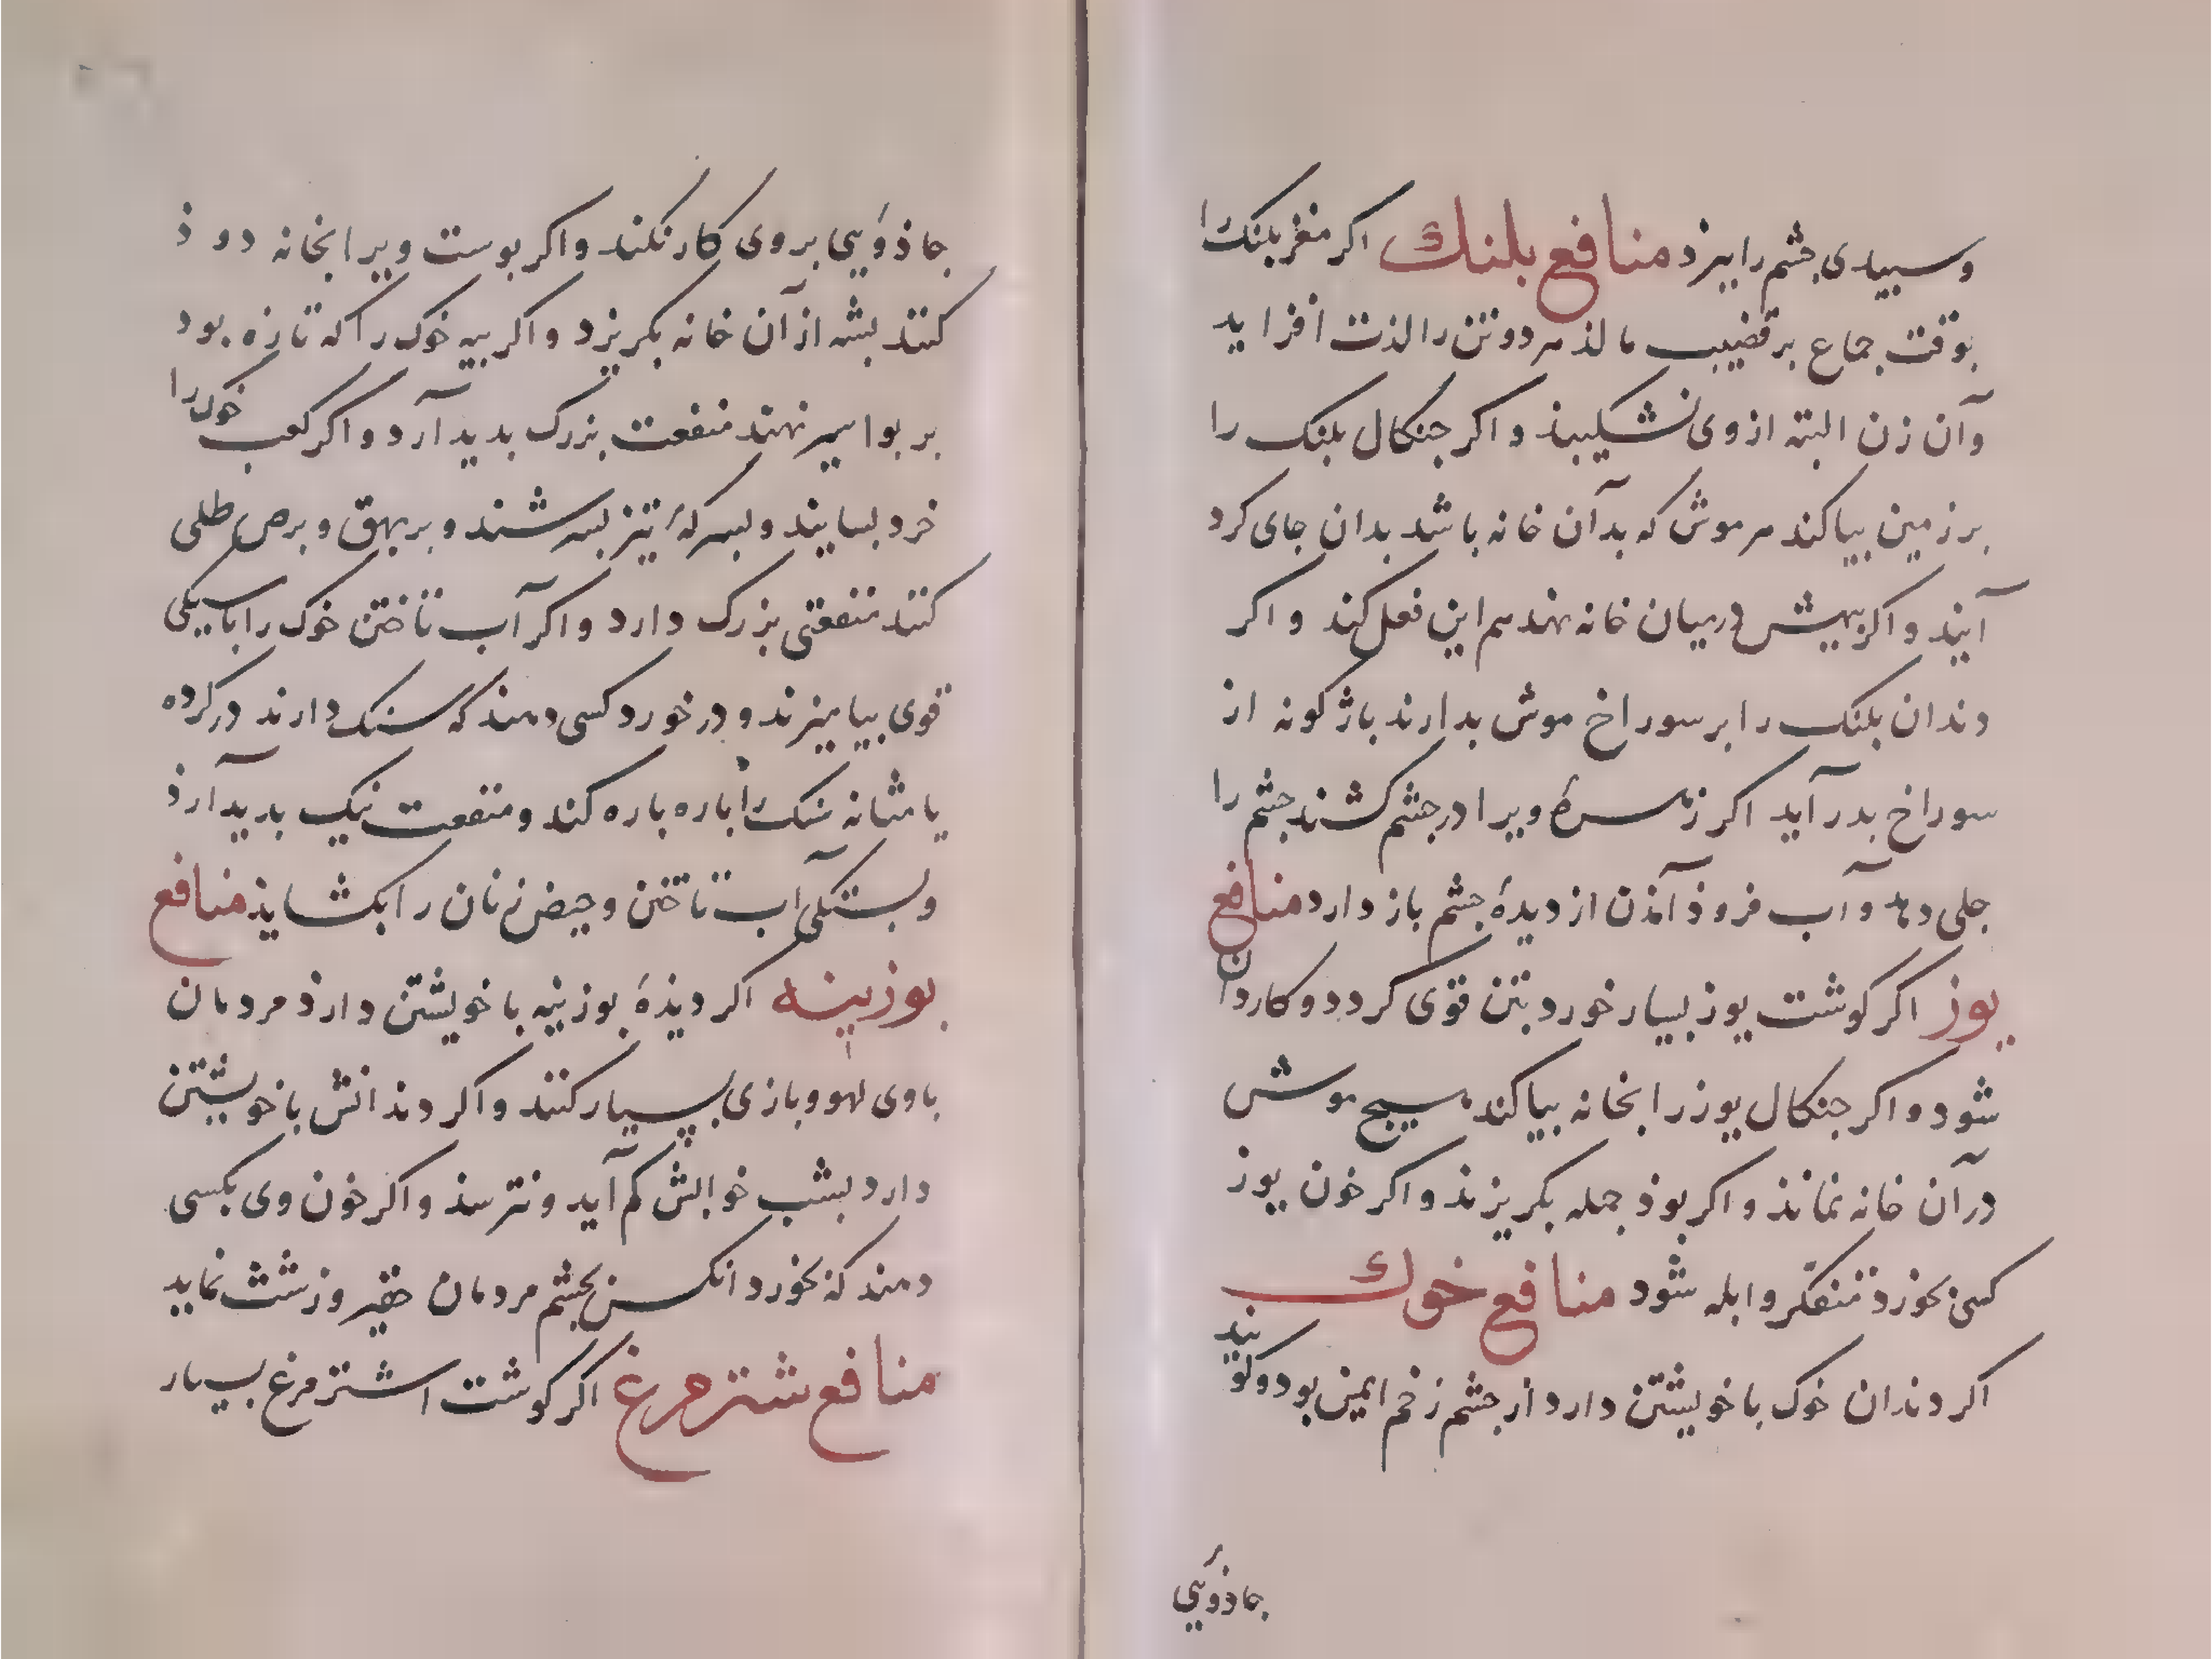 وسبیدی جشم را ببرد منافع بلنك اکر مغز بلنک را
بوقت جماع بر قضیب مالذ هر دو تن را لذت افزاید
وآن زن البته از وی نشکیبذ و اکر جنکال بلنک را
بر زمین بیاکند هر موش که بدآن خانه باشد بدان جای کرد
آیند و اکر بیهش در میان خانه نهند هم این فعل کند و اکر
دندان بلنک را بر سوراخ موش بدارند باژکونه از
سوراخ بدر آید اکر زهرهٔ ویرا در جشم کشند جشم را
جلی دهد و آب فروذ آمذن از دیدهٔ جشم باز دارد منافع
یوز اکر کوشت یوز بسیار خورد بتن قوی کردد و کاردان
شود و اکر جنکال یوز را بخانه بیاکند هیج موش
در آن خانه نمانذ و اکر بوذ جمله بکریزند و اکر خون یوز
کسی بخورذ متفکّر و ابله شود منافع خوك
اکر دندان خوک با خویشتن دارد از جشم زخم ایمن بود و کویند
جاذوَیی
جاذوَیی بر وی کار نکند و اکر بوست ویرا بخانه دوذ
کنند بشه از آن خانه بکریزد و اکر بیه خوک را که تازه بود
بر بواسیر نهند منفعت بزرک بدید آرد و اکر کعب خوک را
خرد بسایند و بسرکهٔ تیز بسرشند و بر بهق و برص طلی
کنند منفعتی بزرک دارد و اکر آب تاختن خوک را با سیکی
قوی بیامیزند و در خورد کسی دهند که سنک دارند در کرده
یا مثانه سنک را باره باره کند و منفعت نیک بدید آرذ
و بستکی آب تاختن و حیض زنان را بکشایذ منافع
بوزینه اکر دیذهٔ بوزنیه با خویشتن دارذ مردمان
با وی لهو و بازی بسیار کنند و اکر دندانش با خویشتن
دارد بشب خوابش کم آید و نترسذ و اکر خون وی بکسی
دهند که بخورد انکس بجشم مردمان حقیر و زشت نماید
منافع شترمرغ اکر کوشت اشترمرغ بسیار